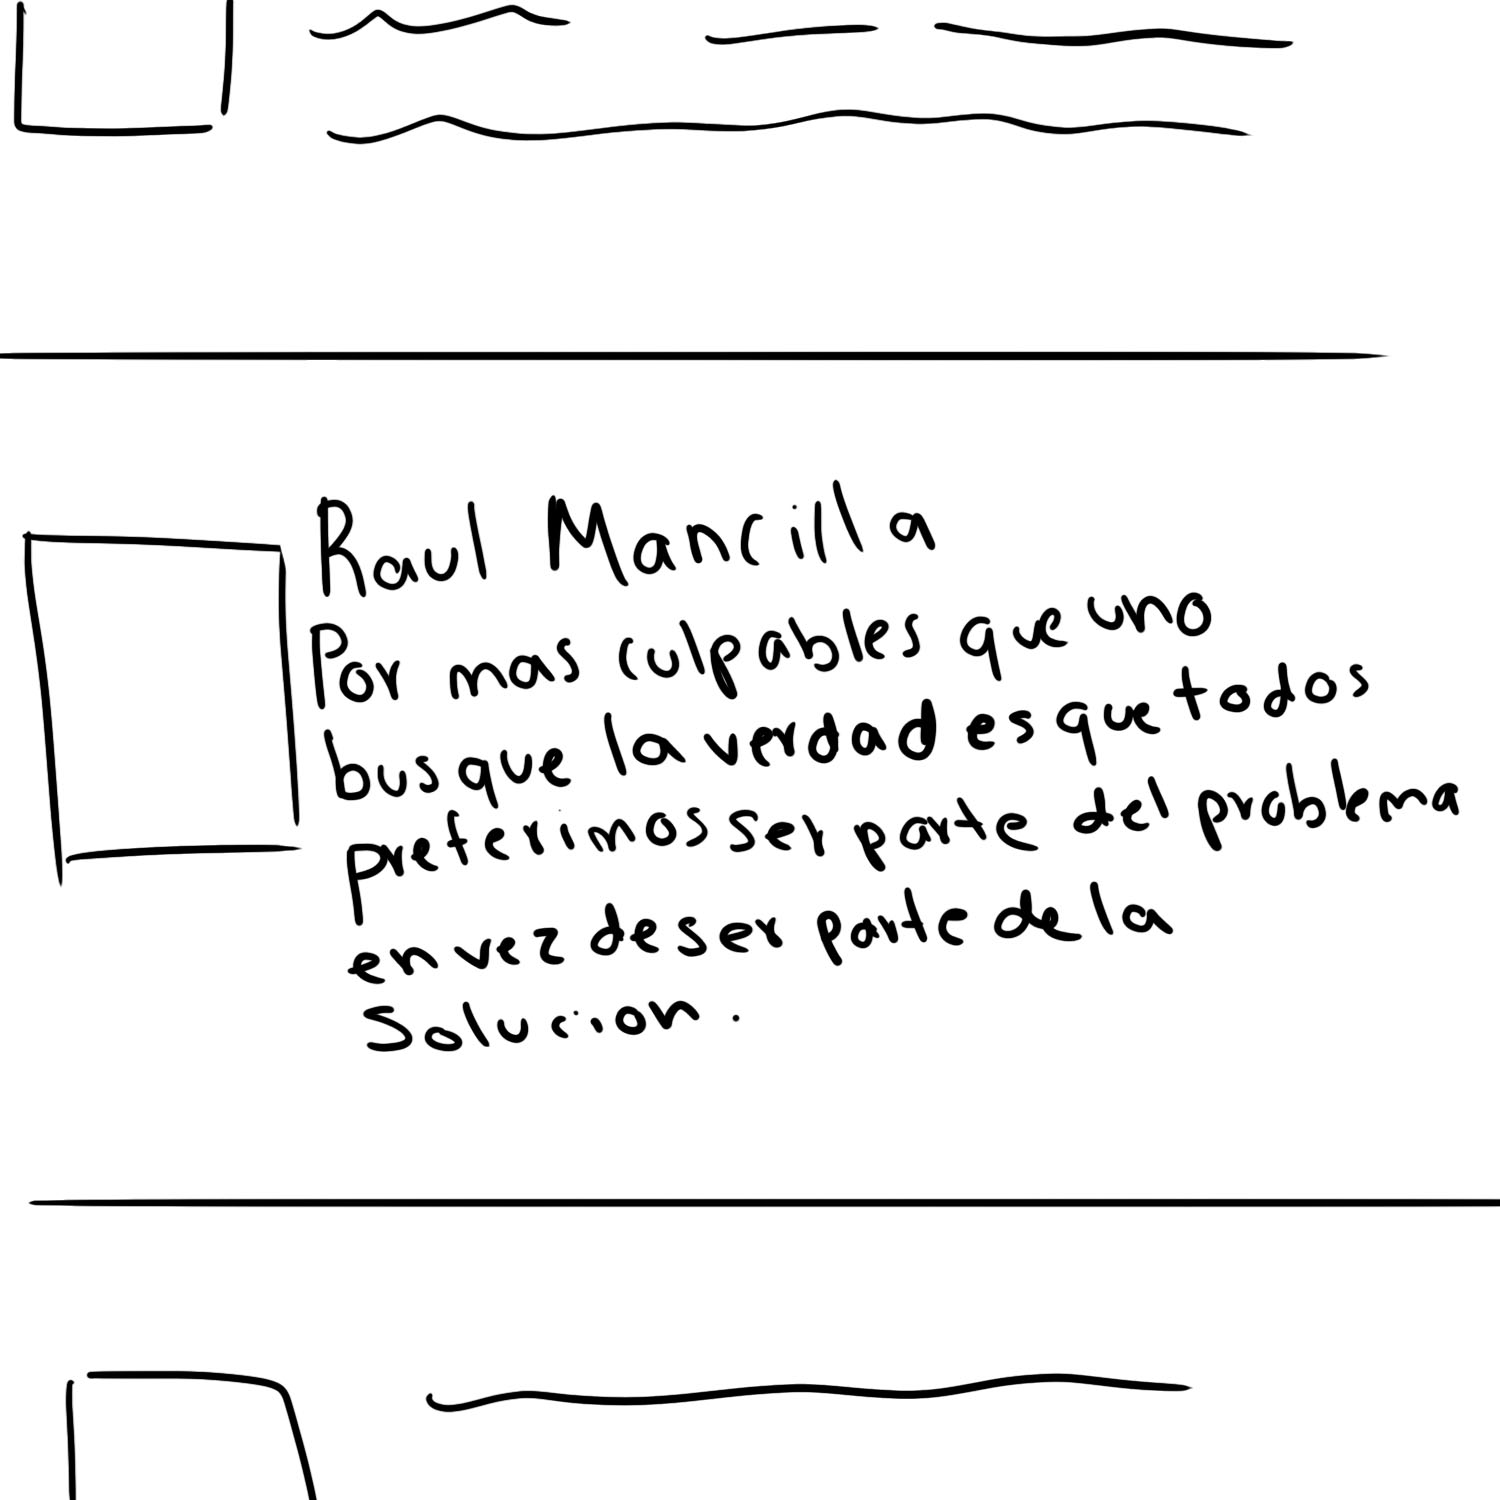 Raul Mancilla
Por mas culpables que uno
busque la verdad es que todos
preferimos ser parte del problema
en vez de ser parte de la
Solucion.